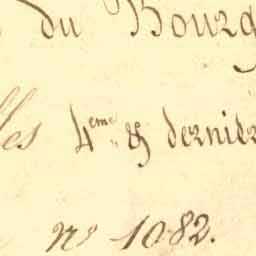 du Bourg
les 4eme & dernier
no 1082.